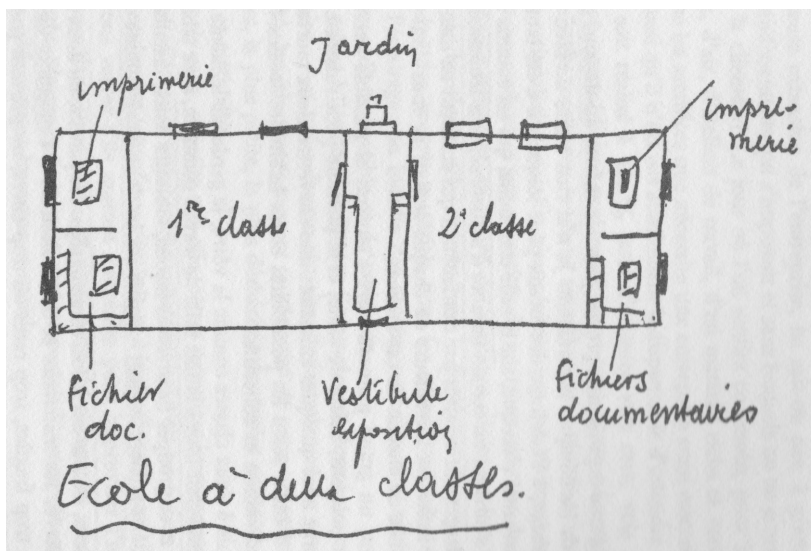 Jardin
imprimerie
impri-
merie
1re classe
2e classe
Fichier
doc.
Vestibule
exposition
Fichiers
documentaires
Ecole à deux classes.